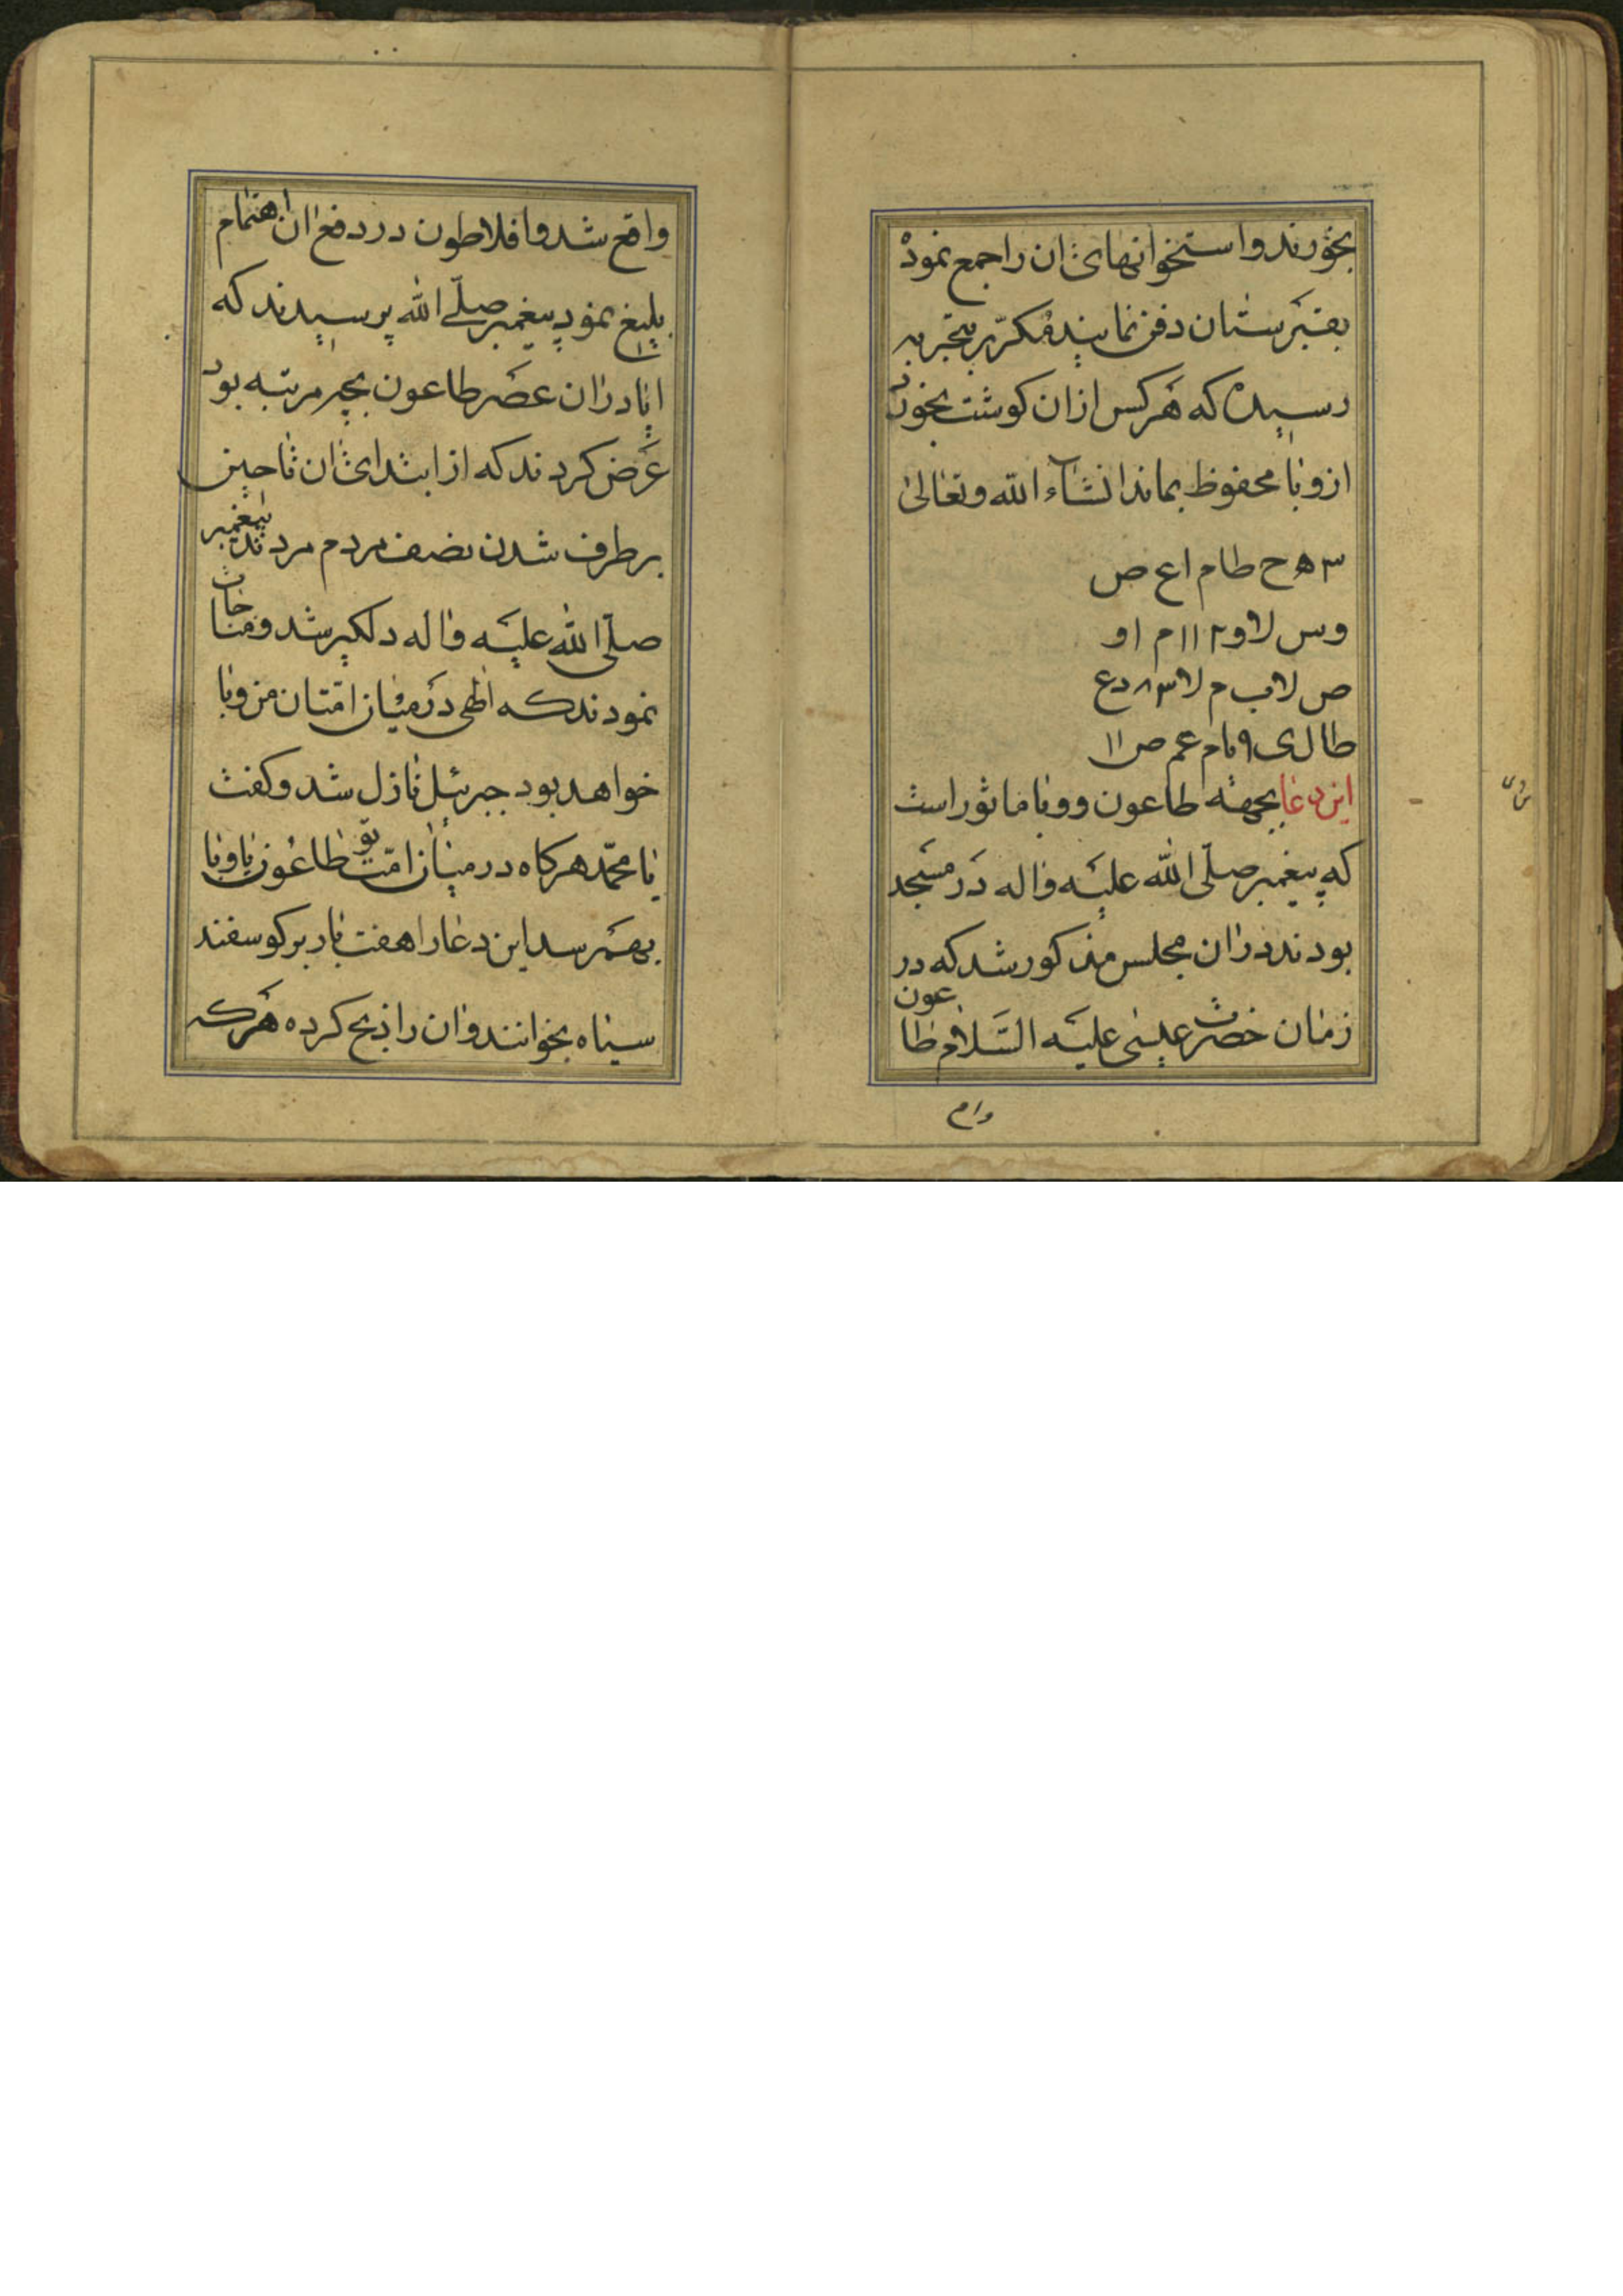 بخورند و استخوانهای ان را جمع نموده
بقبرستان دفن نمایند مکرّر بتجربه
رسیده که هر کس ازان کوشت بخورد
از وبا محفوظ بماند انشاء الله وتعالی
۳ ه ح طا م ا ع ص
و س لا و ۲ ۱۱ م ا و
ص لا ب م لا ۳ ۸ د ع
طا ل ی ۹ با م عم ص ۱۱
این دعا بجهة طاعون و وبا ماثور است
که پیغمبر صلّی الله علیه واله در مسجد
بودند دران مجلس مذکور شد که در
زمان حضرت عیسی علیه السّلام طاعون
واقع شد و افلاطون در دفع ان اهتمام
بلیغ نمود پیغمبر صلّی الله پرسیدند که
ایا دران عصر طاعون بچه مرتبه بود
عرض کردند که از ابتدای ان تا حین
برطرف شدن نصف مردم مردند پیغمبر
صلّی الله علیه واله دلکیر شد و مناجات
نمودند که الهی در میان امّتان من وبا
خواهد بود جبرئیل نازل شد و کفت
یا محمّد هرکاه در میان امّت تو طاعون یا وبا
بهمرسد این دعا را هفت بار بر کوسفند
سیاه بخوانند وان را ذبح کرده هرکه